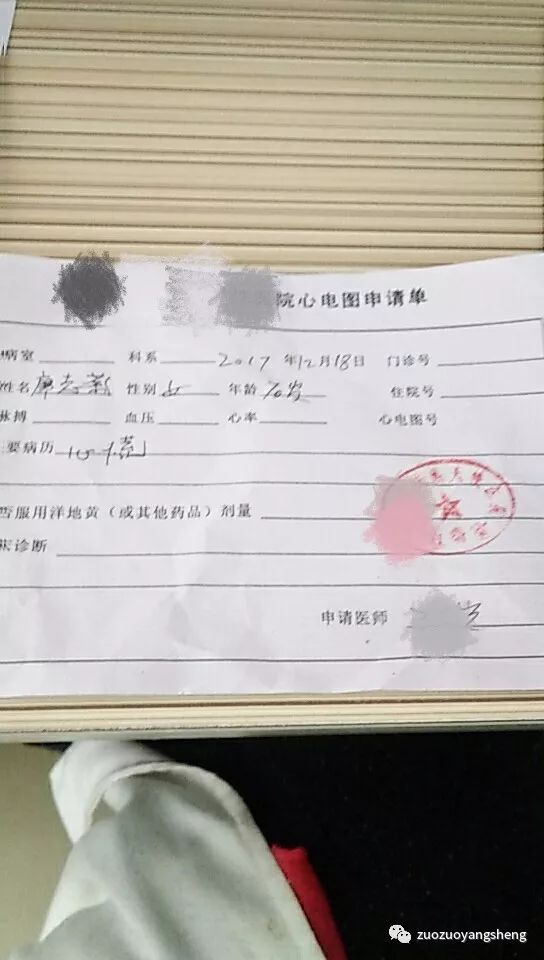 院心电图申请单
病室 科系 2017 年12月18日 门诊号
姓名 性别 女 年龄 70岁 住院号
脉搏 血压 心率 心电图号
要病历 心慌
否服用洋地黄（或其他药品）剂量
床诊断
申请医师
zuozuoyangsheng